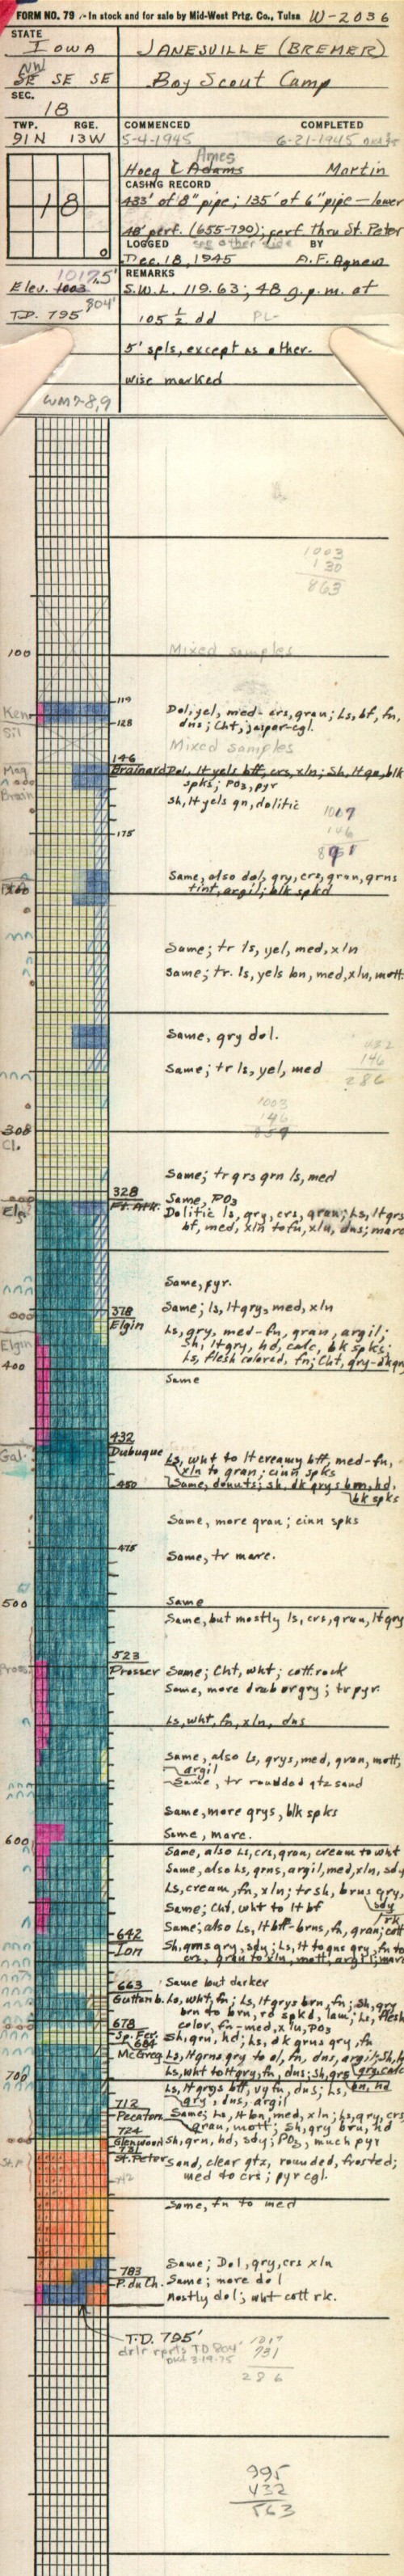 FORM NO. 79 - In stock and for sale by Mid-West Prtg. Co., Tulsa W-2036
STATE
IOWA JANESVILLE (BREMER)
NW
SE SE SE Boy Scout Camp
SEC.
18
TWP. RGE. COMMENCED COMPLETED
91N 13W 5-4-1945 6-21-1945
Ames
Hoeg & Adams Martin
CASING RECORD
18
433' of 8" pipe; 135' of 6" pipe - lower
48' perf. (655-790); cerf thru St. Peter
LOGGED see other side BY
Dec. 18, 1945 A.F. Agnew
1017.5'
Elev. 1003
REMARKS
S.W.L. 119.63; 48 g.p.m. at
804'
T.D. 795' 105 ½ dd PL-
5' spls, except as other-
wise marked
WM7-8,9
1003
130
863
100 Mixed samples
119
Ken Dol, yel, med-crs, gran; Ls, bf, fn,
128 dns; Cht, jasper-cgl.
Sil
Mixed samples
146
Maq Brainard Dol, lt yels bff, crs, xln; Sh, lt gn, blk
spks; PO3, pyr
Brain Sh, lt yels gn, dolitic
1017
146
871
175
Same, also dol, gry, crs, gran, grns
tint, argil; blk spkd
Same; tr ls, yel, med, xln
Same; tr. ls, yels bn, med, xln, mott.
Same, gry dol.
432
146
286
Same; tr ls, yel, med
1003
146
859
300
Cl.
Same; tr grs grn ls, med
328 Same, PO3
Ft. Atk.
Elg Dolitic ls, gry, crs, gran; Ls, lt grs
bf, med, xln to fn, xln, dns; marc
Same, pyr.
378 Same; ls, lt gry, med, xln
Elgin Ls, gry, med-fn, gran, argil;
Sh, lt gry, hd, calc, bk spks;
Elgin Ls, flesh colored, fn; Cht, gry-dkgn
400
Same
432
Dubuque
Gal. Ls, wht to lt creamy bff, med-fn,
xln to gran; cinn spks
450 Same, donuts; sh, dk grys brn, hd,
bk spks
Same, more gran; cinn spks
475
Same, tr marc.
500 Same
Same, but mostly ls, crs, gran, lt gry
523
Pros. Prosser Same; Cht, wht; cott. rock
Same, more drab or gry; tr pyr.
Ls, wht, fn, xln, dns
Same, also Ls, grys, med, gran, mott,
argil
Same, tr rounded qtz sand
Same, more grys, blk spks
600 Same, marc.
Same, also Ls, crs, gran, cream to wht
Same, also Ls, grns, argil, med, xln, sdy
Ls, cream, fn, xln; tr sh, brns gry,
sdy
Same; Cht, wht to lt bf
rk
Same; also Ls, lt bff-brns, fn, gran; cott
642
Ion Sh, grns gry, sdy; Ls, lt to gns gry, fn to
crs, gran to xln, mott, argil; marc
663 Same but darker
Guttenb. Ls, wht, fn; Ls, lt grys brn, fn; Sh, gry
brn to brn, rd spkd, lam; Ls, flesh
678 color, fn-med, xln, PO3
Sp. Fer. Sh, grn, hd; Ls, dk grns gry, fn
684
McGreg Ls, lt grns gry to ol, fn, dns, argil; Sh,
700 Ls, wht to lt gry, fn, dns; Sh, grs gry, calc
Ls, lt grys bff, vy fn, dns; Ls, bn, hd
gry, dns, argil
712
Pecaton. Same; Ls, lt bn, med, xln; Ls, gry, crs,
gran, mott; Sh, gry brn, hd
724
Glenwood Sh, grn, hd, sdy; PO3, much pyr
731
St.P. St. Peter Sand, clear qtz, rounded, frosted;
742 med to crs; pyr cgl.
Same, fn to med
Same; Dol, gry, crs xln
783
P. du Ch. Same; more dol
Mostly dol; wht cott rk.
T.D. 795'
drlr rprts TD 804'
3-19-75
1017
731
286
995
432
563